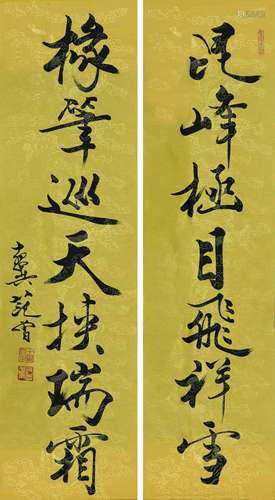 昆峰極目飛祥雪
椽筆巡天挟瑞霜
十翼范曾